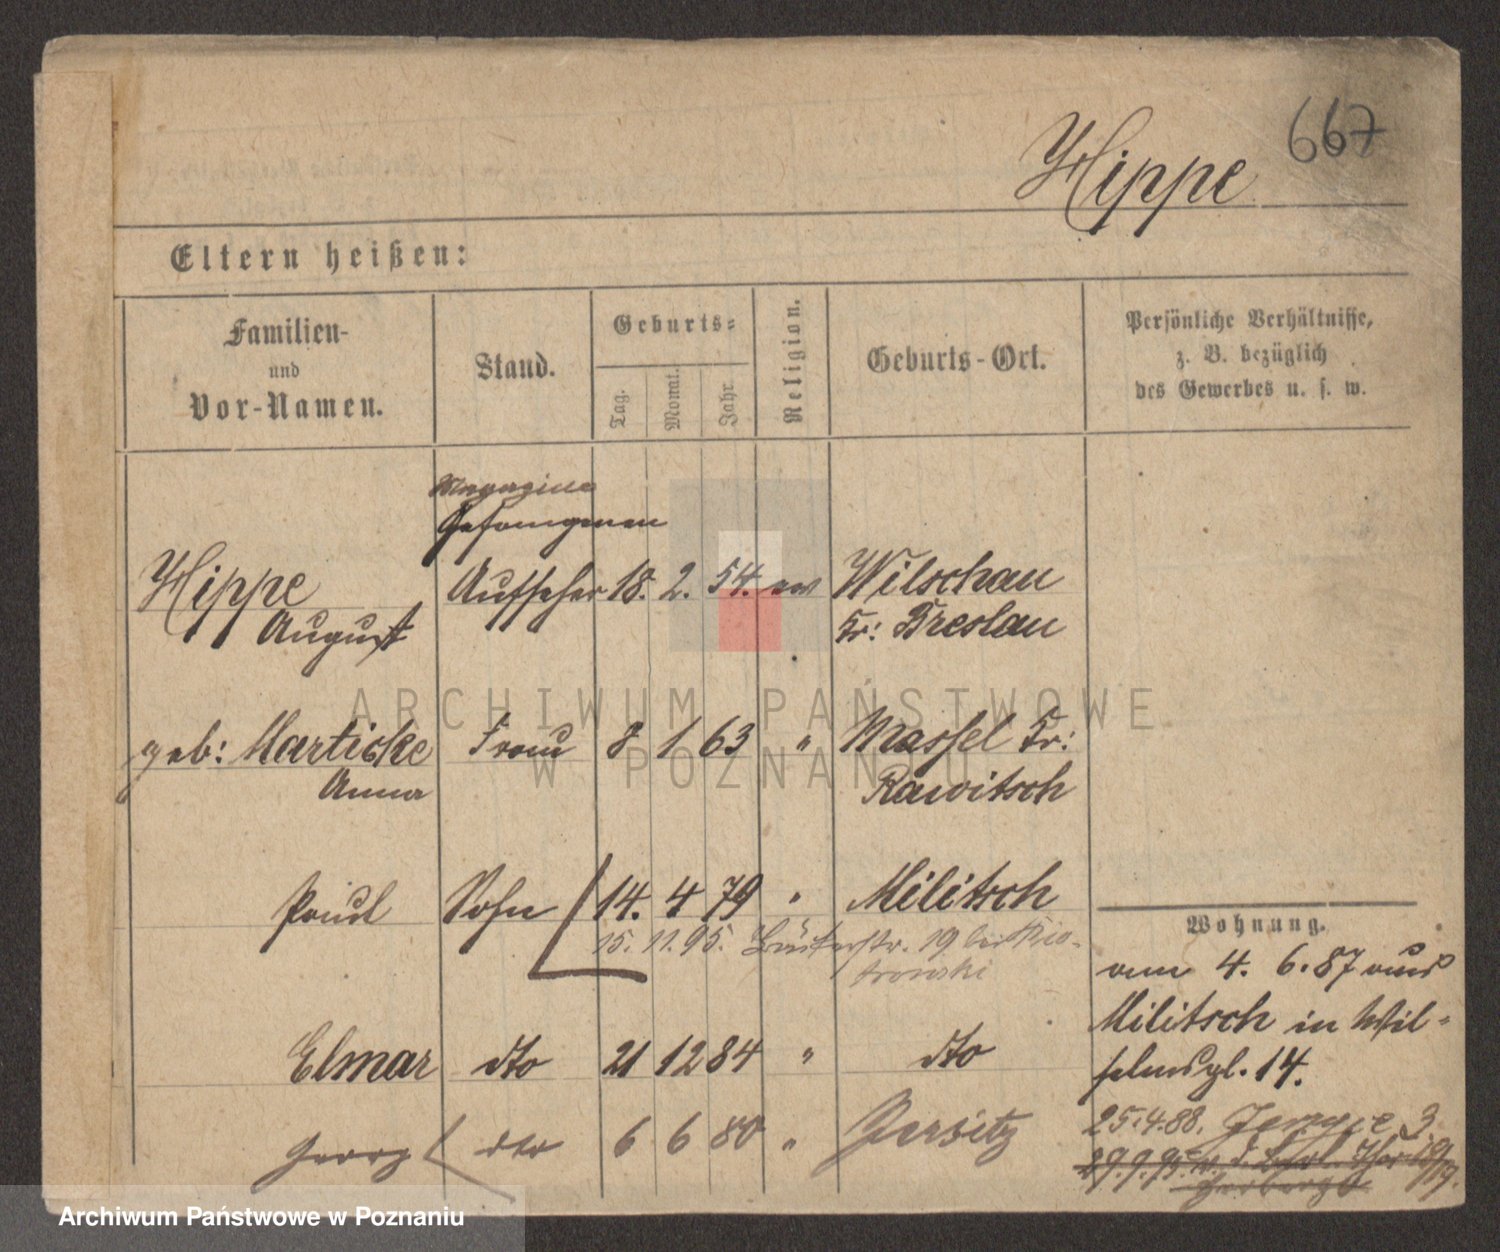 667
Hippe
Eltern heißen:
Familien-
und
Vor-Namen.
Stand.
Geburts-
Tag.
Monat.
Jahr
Religion.
Geburts-Ort.
Persönliche Verhältnisse,
z. B. bezüglich
des Gewerbes u. s. w.
Gefangenen
Hippe Aufseher 18. 2. 54. ev Wilschau
August Kr: Breslau
geb: Marticke Frau 8 1 63 " Massel Kr:
Anna Rawitsch
Paul Sohn 14. 4 79 " Militsch
15. 11. 95. 19 bei
Wohnung.
am 4. 6. 87 aus
Militsch in Wil-
helmspl. 14.
Elmar dto 21 12 84 " dto
Georg dto 6 6 80 " Jersitz
25.4.88. 3
29.9.95. v. d. Berl. Thor
ARCHIWUM PAŃSTWOWE
W POZNANIU
Archiwum Państwowe w Poznaniu